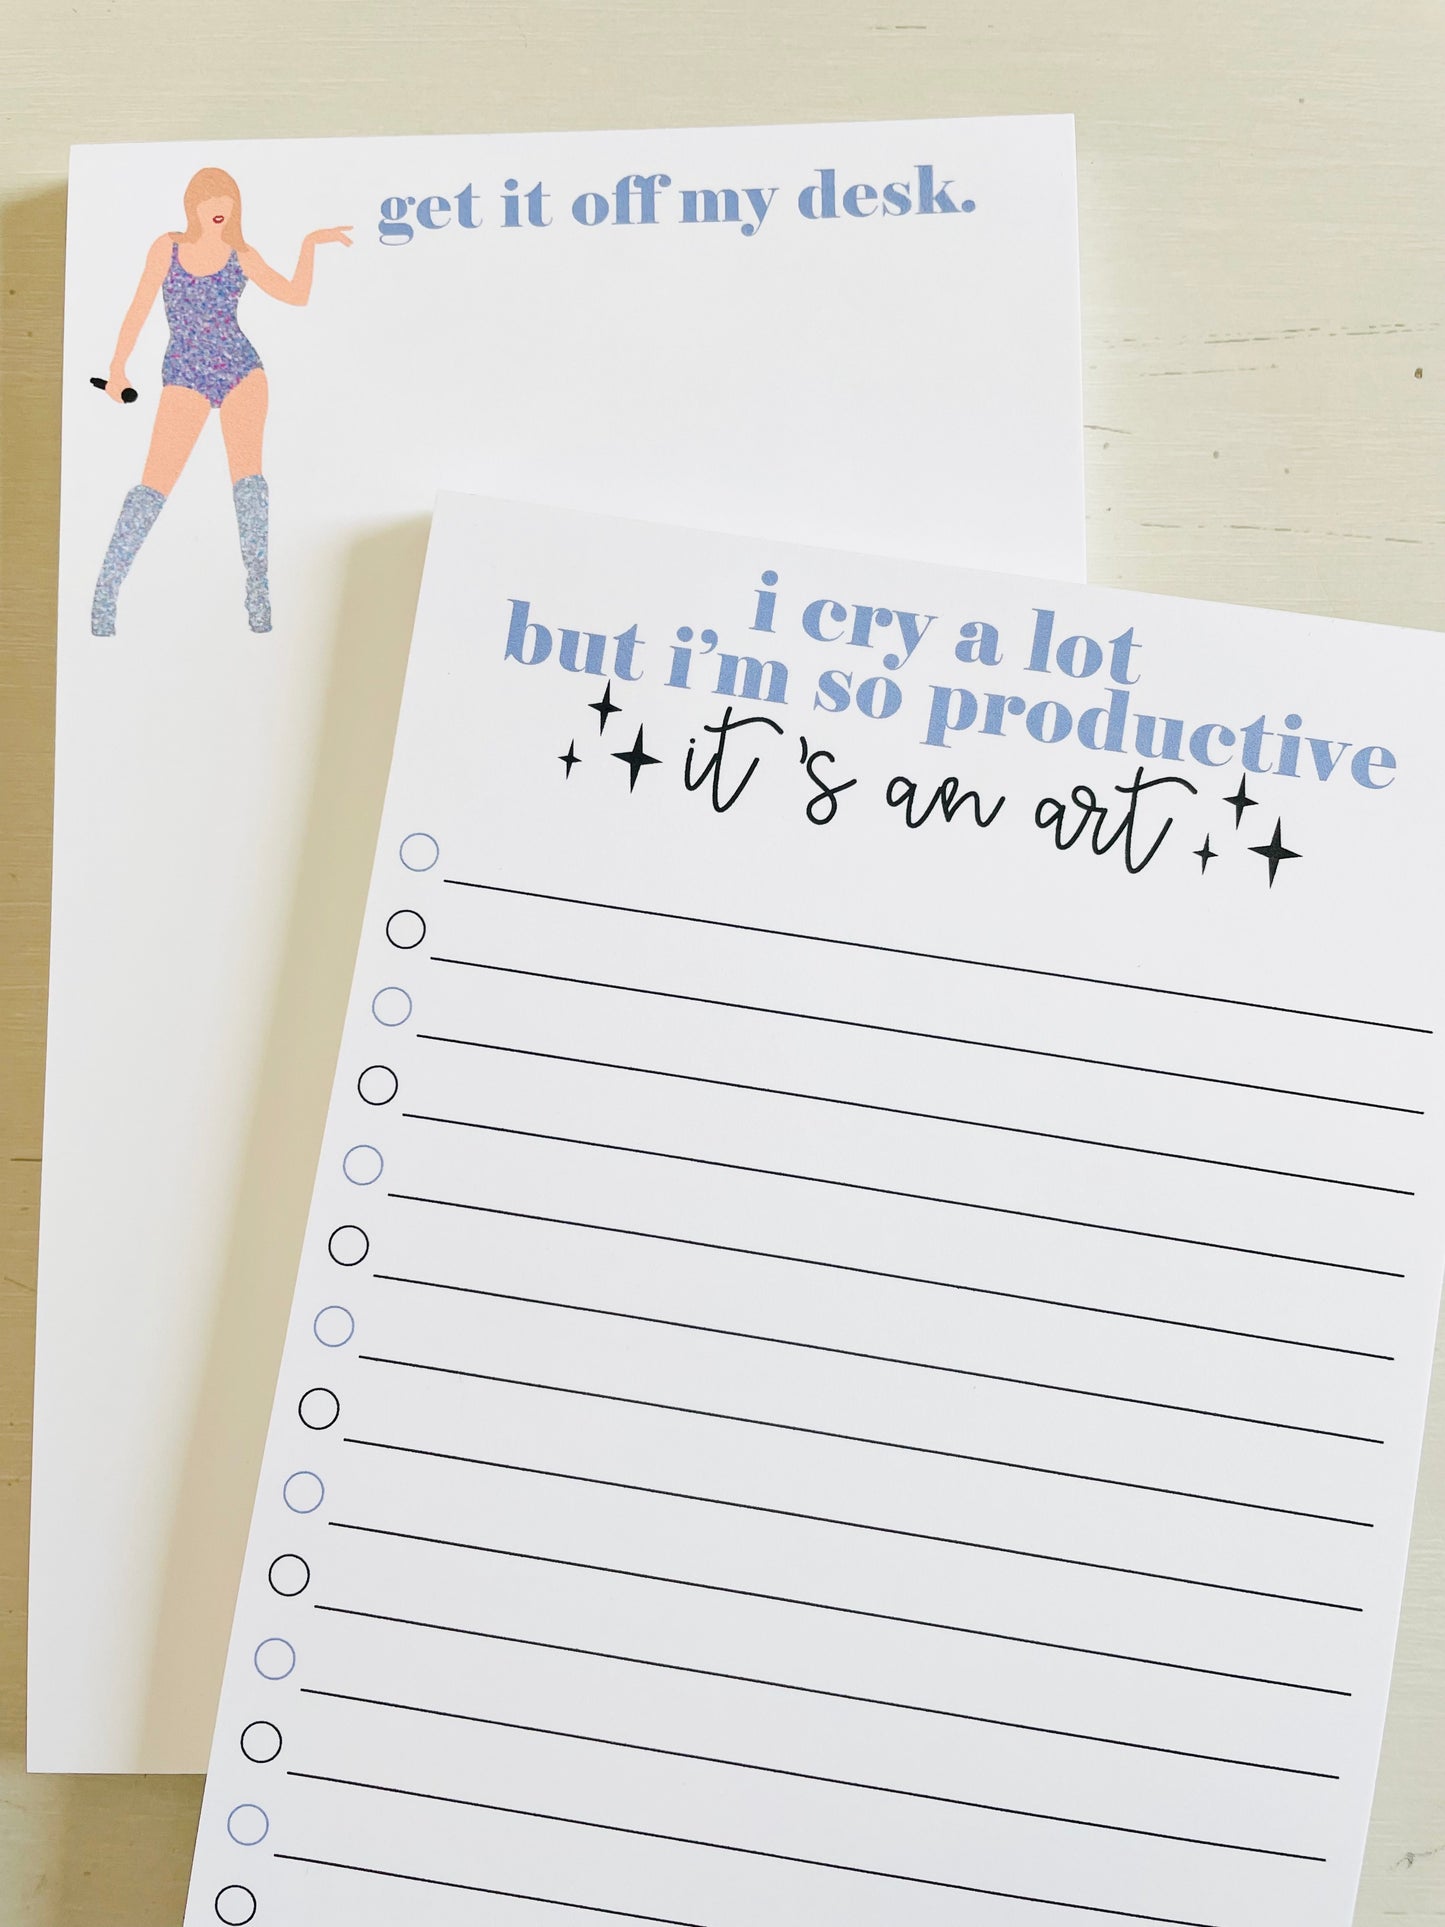 get it off my desk.
i cry a lot
but i'm so productive
it's an art